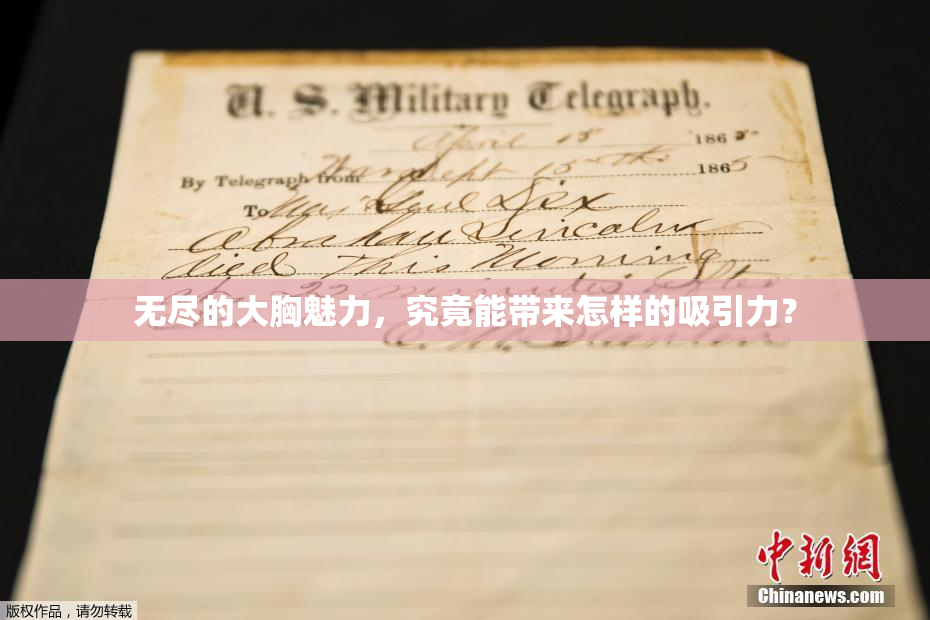 U. S. Military Telegraph.
April 15 1865
By Telegraph from War Dept 15th 1865
To Maj Genl Dix
Abraham Lincoln
died This Morning
at 22 minutes after
无尽的大胸魅力，究竟能带来怎样的吸引力？
中新网
Chinanews.com
版权作品，请勿转载